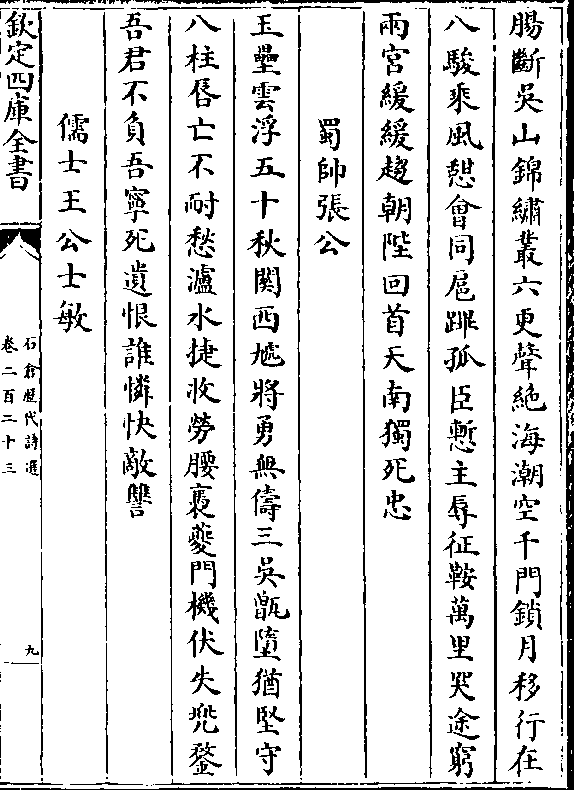 腸斷吳山錦繡叢六更聲絶海潮空千門鎖月移行在
八駿乘風愬會同扈蹕孤臣慙主辱征鞍萬里哭途窮
兩宮緩緩趨朝陛回首天南獨死忠
蜀帥張公
玉壘雲浮五十秋関西虓將勇無儔三吳甑墮猶堅守
八柱唇亡不耐愁瀘水捷收勞腰褭夔門機伏失兠鍪
吾君不負吾寧死遺恨誰憐快敵讐
儒士王公士敏
欽定四庫全書
石倉歷代詩選
卷二百二十三
九